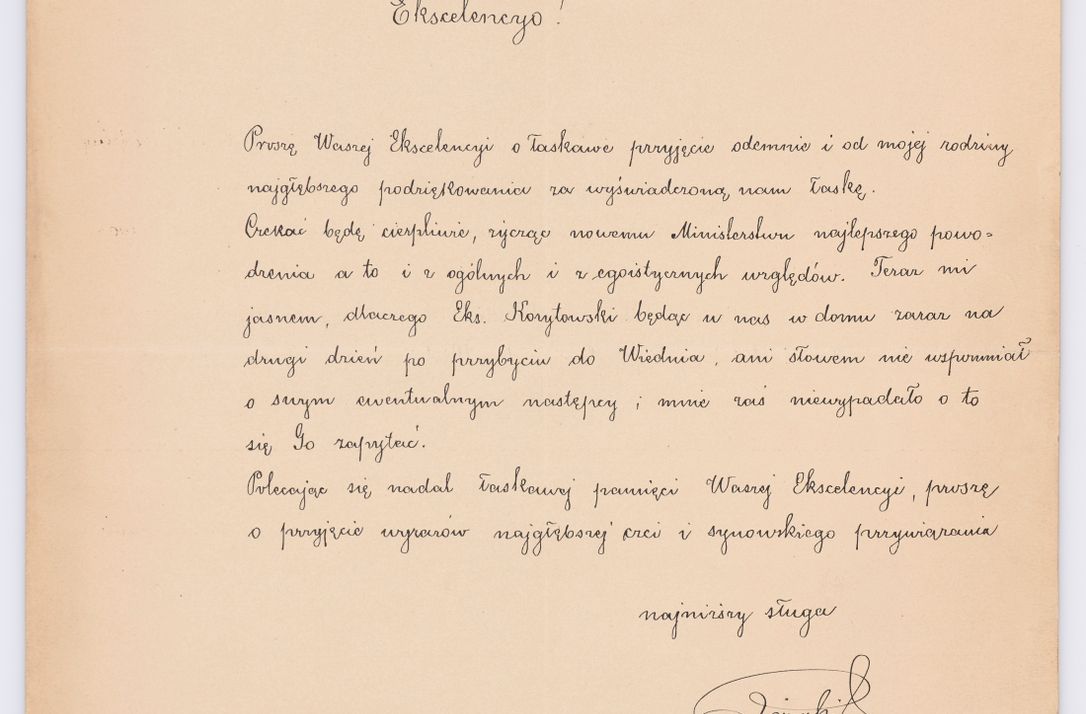 Ekscelencyo!
Proszę Waszej Ekscelencyi o łaskawe przyjęcie odemnie i od mojej rodziny
najgłębszego podziękowania za wyświadczoną nam łaskę.
Czekać będę cierpliwie, życząc nowemu Ministerstwu najlepszego powo-
dzenia a to i z ogólnych i z egoistycznych względów. Teraz mi
jasnem, dlaczego Eks. Korytowski będąc u nas w domu zaraz na
drugi dzień po przybyciu do Wiednia, ani słowem nie wspomniał
o swym ewentualnym następcy; mnie zaś niewypadało o to
się Go zapytać.
Polecając się nadal łaskawej pamięci Waszej Ekscelencyi, proszę
o przyjęcie wyrazów najgłębszej czci i synowskiego przywiązania
najniższy sługa